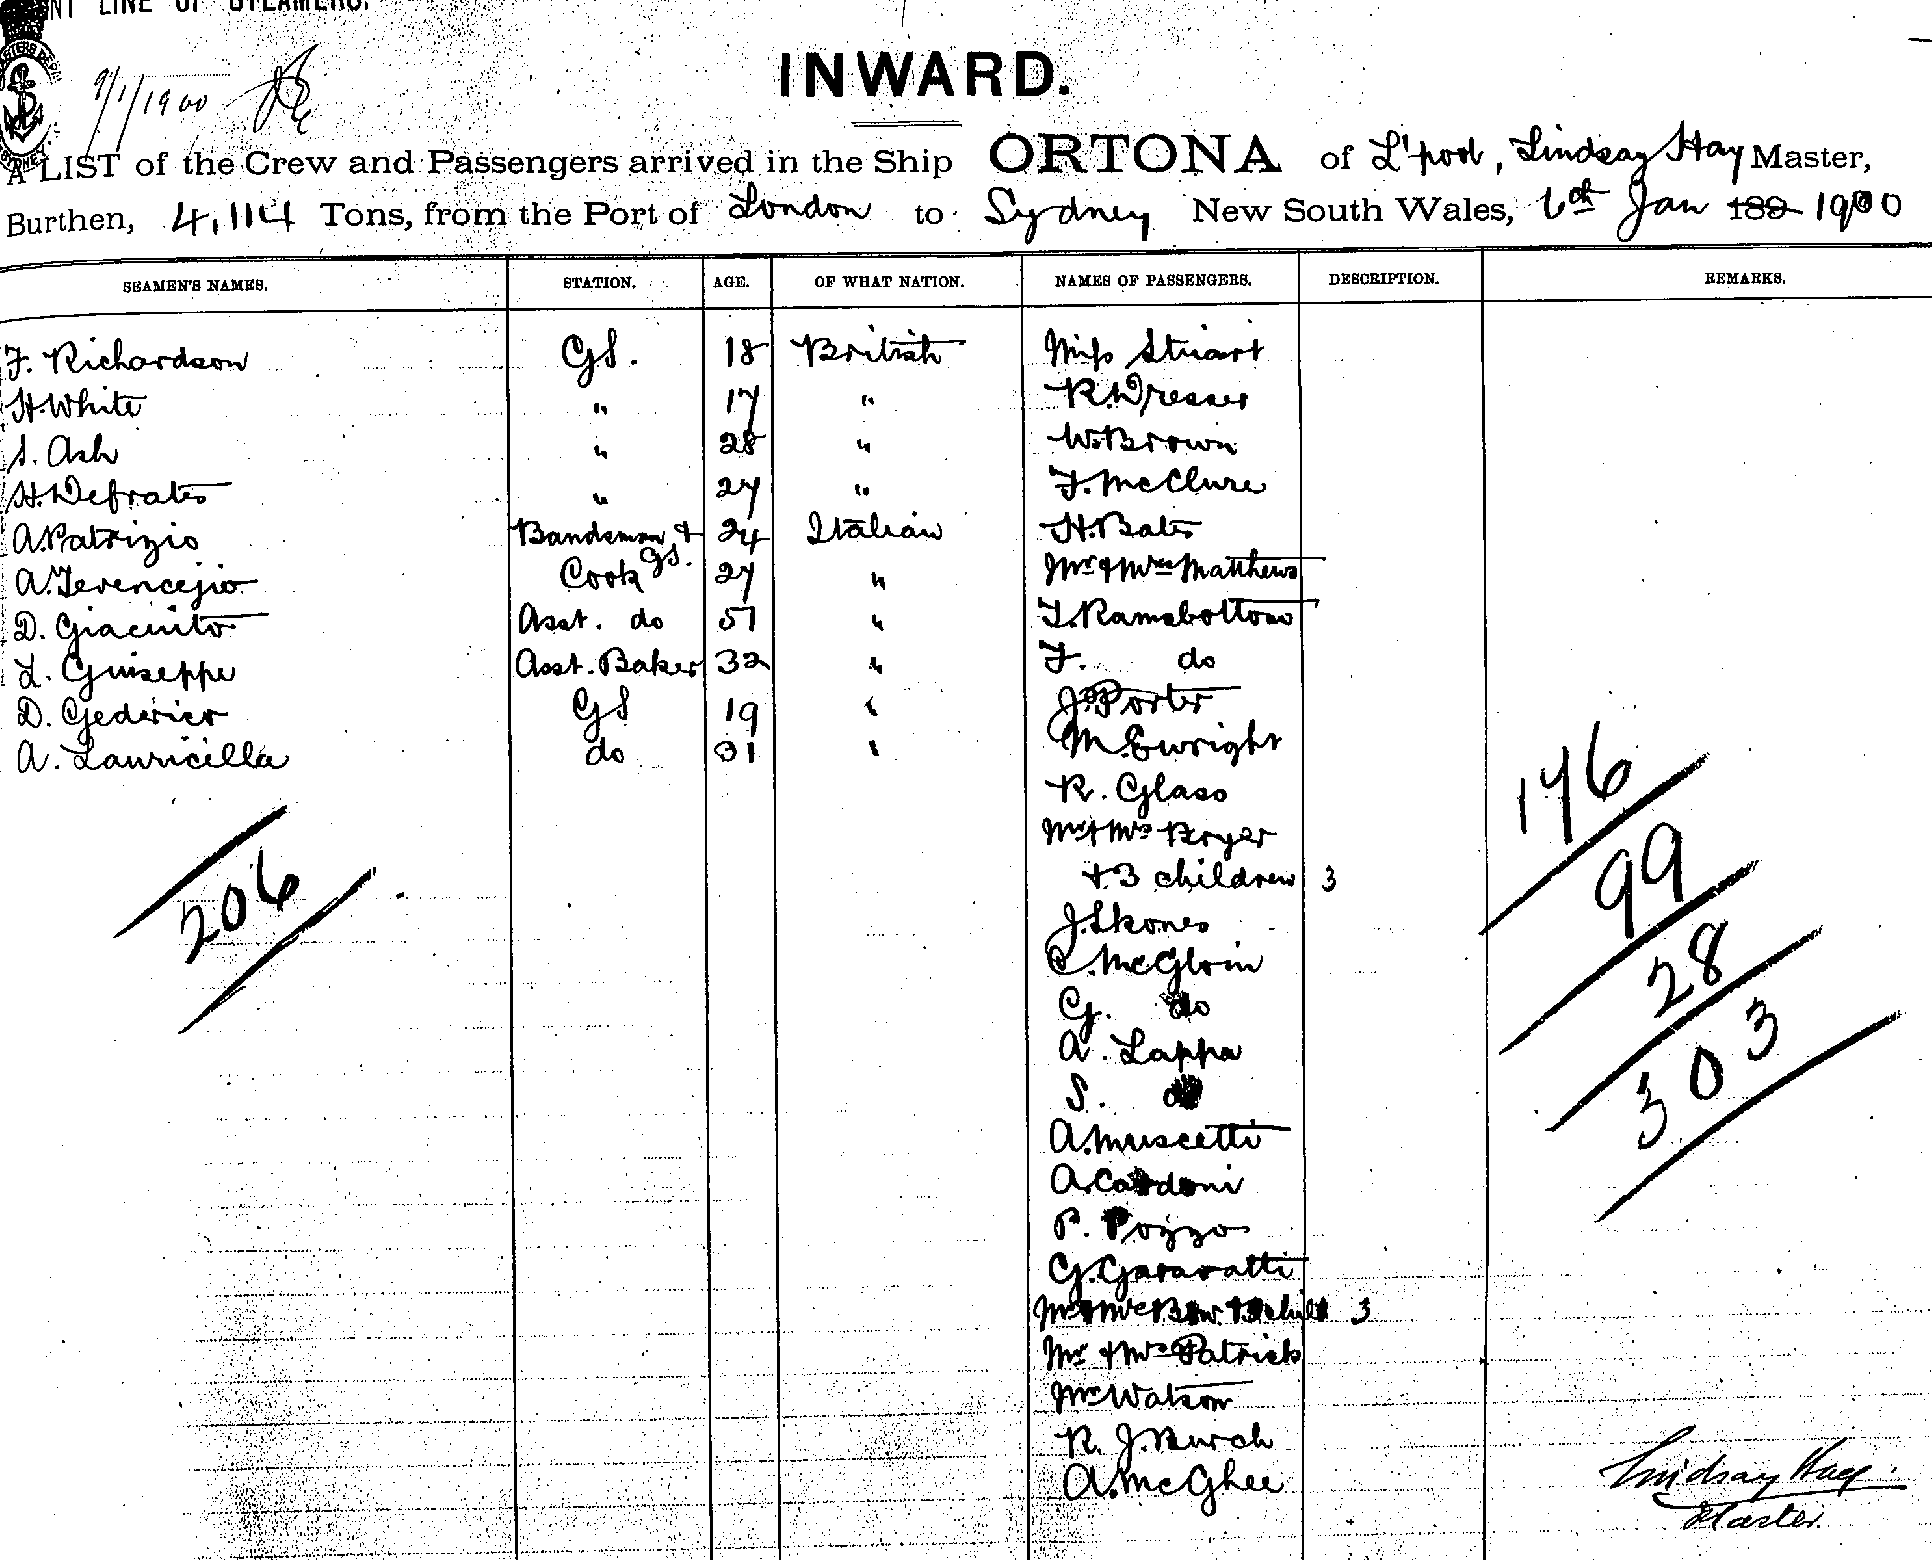 NT LINE OF STEAMERS.
9/1/1900
INWARD.
A LIST of the Crew and Passengers arrived in the Ship ORTONA of L'pool, Lindsay Hay Master,
Burthen, 4,114 Tons, from the Port of London to Sydney New South Wales, 6th Jan 189 1900
SEAMEN'S NAMES. STATION. AGE. OF WHAT NATION. NAMES OF PASSENGERS. DESCRIPTION. REMARKS.
F. Richardson GS. 18 British Miss Stuart
H. White " 17 " R. Dresser
S. Ash " 28 " W. Brown
H. Defrates " 27 " F. McClure
A. Patrizio Bandsman & GS. 24 Italian H. Bates
A. Terencejio Cook 27 " Mr & Mrs Matthews
D. Giacinto Asst. do 51 " T. Ramsbottom
L. Guiseppe Asst. Baker 32 " F. do
D. Gederico GS 19 " J. Porter
A. Lauricella do 31 " M. Enright
R. Glass
Mr & Mrs Bryer
& 3 children 3
J. Skones
C. McGloin
G. do
A. Lappa
S. do
A. Muscetti
A. Cardoni
P. Pozzo
G. Garavatti
3
Mr & Mrs Patrick
Mr Watson
R. J. Burch
A. McGhee
206
176
99
28
303
Lindsay Hay.
Master.